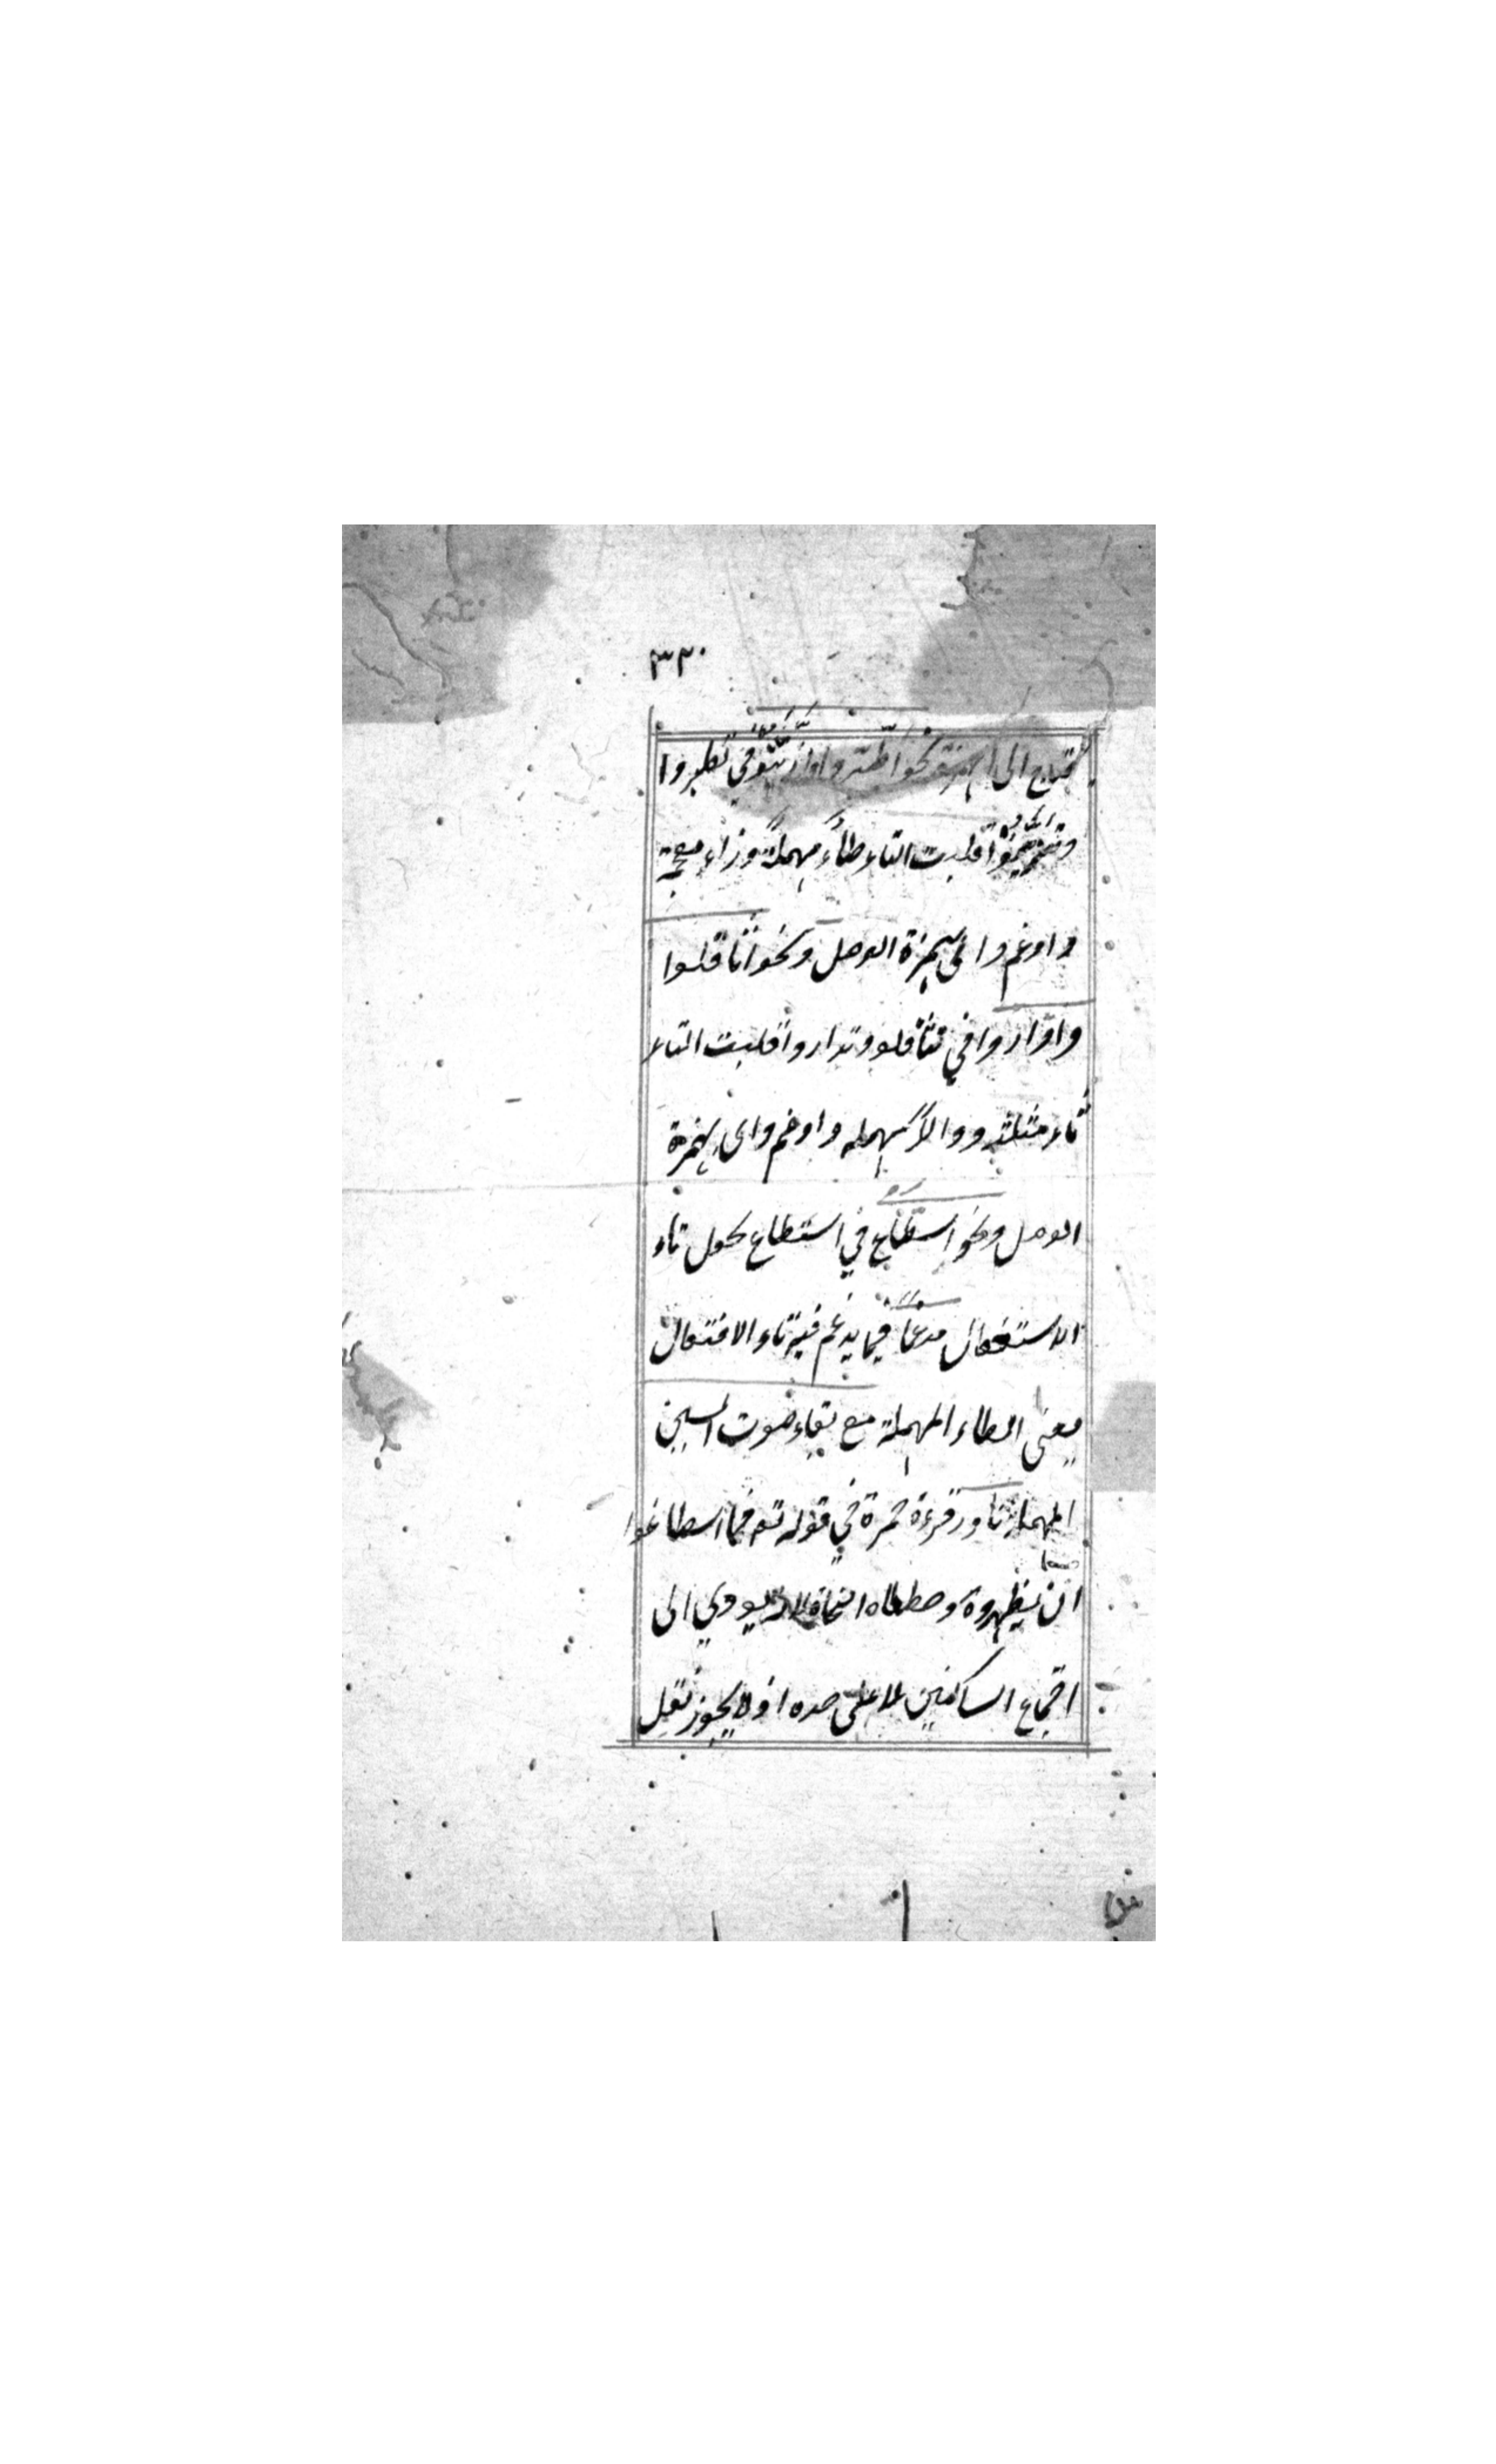 ٣٣٠
يحتاج الى الهمزة نحو اطيروا وازينوا في تطيروا
وتزينوا قلبت التاء طاءً مهملةً وزاء معجمة
وادغم واتى بهمزة الوصل ونحو اثاقلوا
وادّاروا في تثاقلو وتداروا قلبت التاء
ثاء مثلثه ودالاً مهمله وادغم واتى بهمزة
الوصل ونحو اسطّاع في استطاع بحول تاء
الاستفعال مدغماً فيما يدغم فيه تاء الافتعال
يعنى الطاء المهملة مع بقاء صوت السين
المهملة نادر قرءة حمزة في قوله تع فما اسطاعوا
ان يظهروه وخطاه النحاة لانه يودي الى
اجتماع الساكنين لا على حده اذ لا يجوز نقل